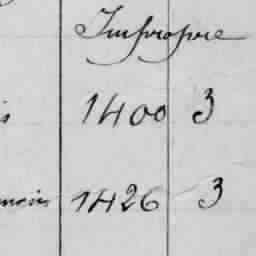 Impropre
1400 3
1426 3